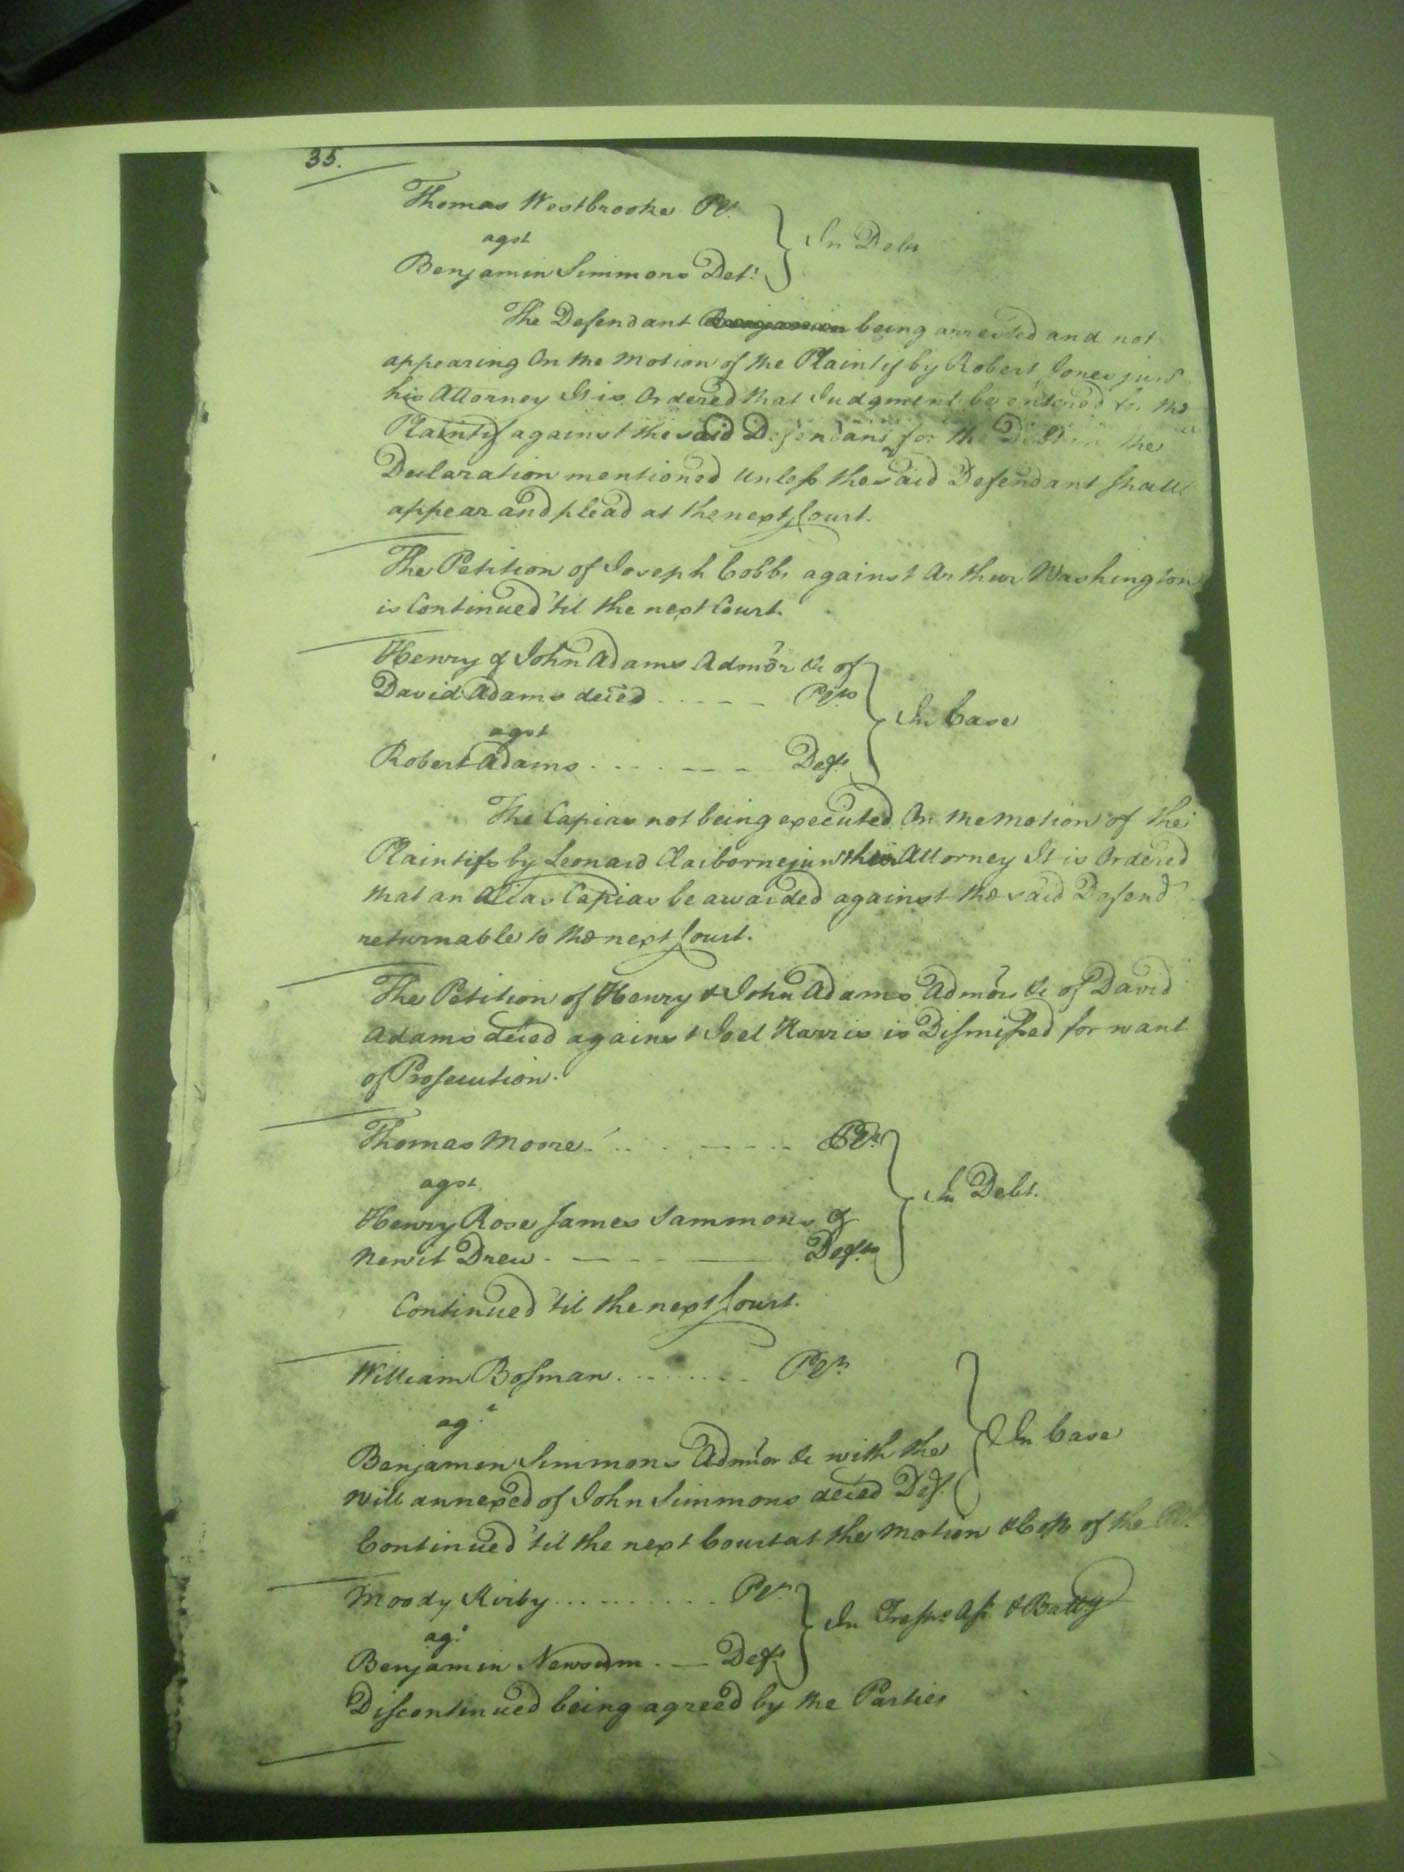 35.
Thomas Westbrooke Plt.
agst
Benjamin Simmons Def.t
In Debt
The Defendant being arrested and not
appearing On the Motion of the Plaintif by Robert Jones junr
his Attorney It is Ordered that Judgment be entered for the
Plaintif against the said Defendant for the Debt in the
Declaration mentioned Unless the said Defendant shall
appear and plead at the next Court.
The Petition of Joseph Cobbs against Arthur Washington
is Continued 'til the next Court.
Henry & John Adams Adm'ors &c of
David Adams deced ..... Plts
agst
Robert Adams ...... Deft.
In Case
The Capias not being executed On the motion of the
Plaintifs by Leonard Claiborne junr their Attorney It is Ordered
that an Alias Capias be awarded against the said Defend
returnable to the next Court.
The Petition of Henry & John Adams Adm'ors &c of David
Adams deced against Joel Harris is Dismissed for want
of Prosecution.
Thomas Moore ........ Plt.
agst
Henry Rose James Sammons &
Newit Drew ........ Defts
In Debt.
Continued 'til the next Court.
William Bosman ........ Plt.
ag.t
Benjamin Simmons Adm'or &c with the
Will annexed of John Simmons deced Deft.
In Case
Continued 'til the next Court at the Motion & Costs of the Plt.
Moody Kirby .......... Plt.
ag.t
Benjamin Newsum .— Deft.
In Tresps Ass & Batty
Discontinued being agreed by the Parties